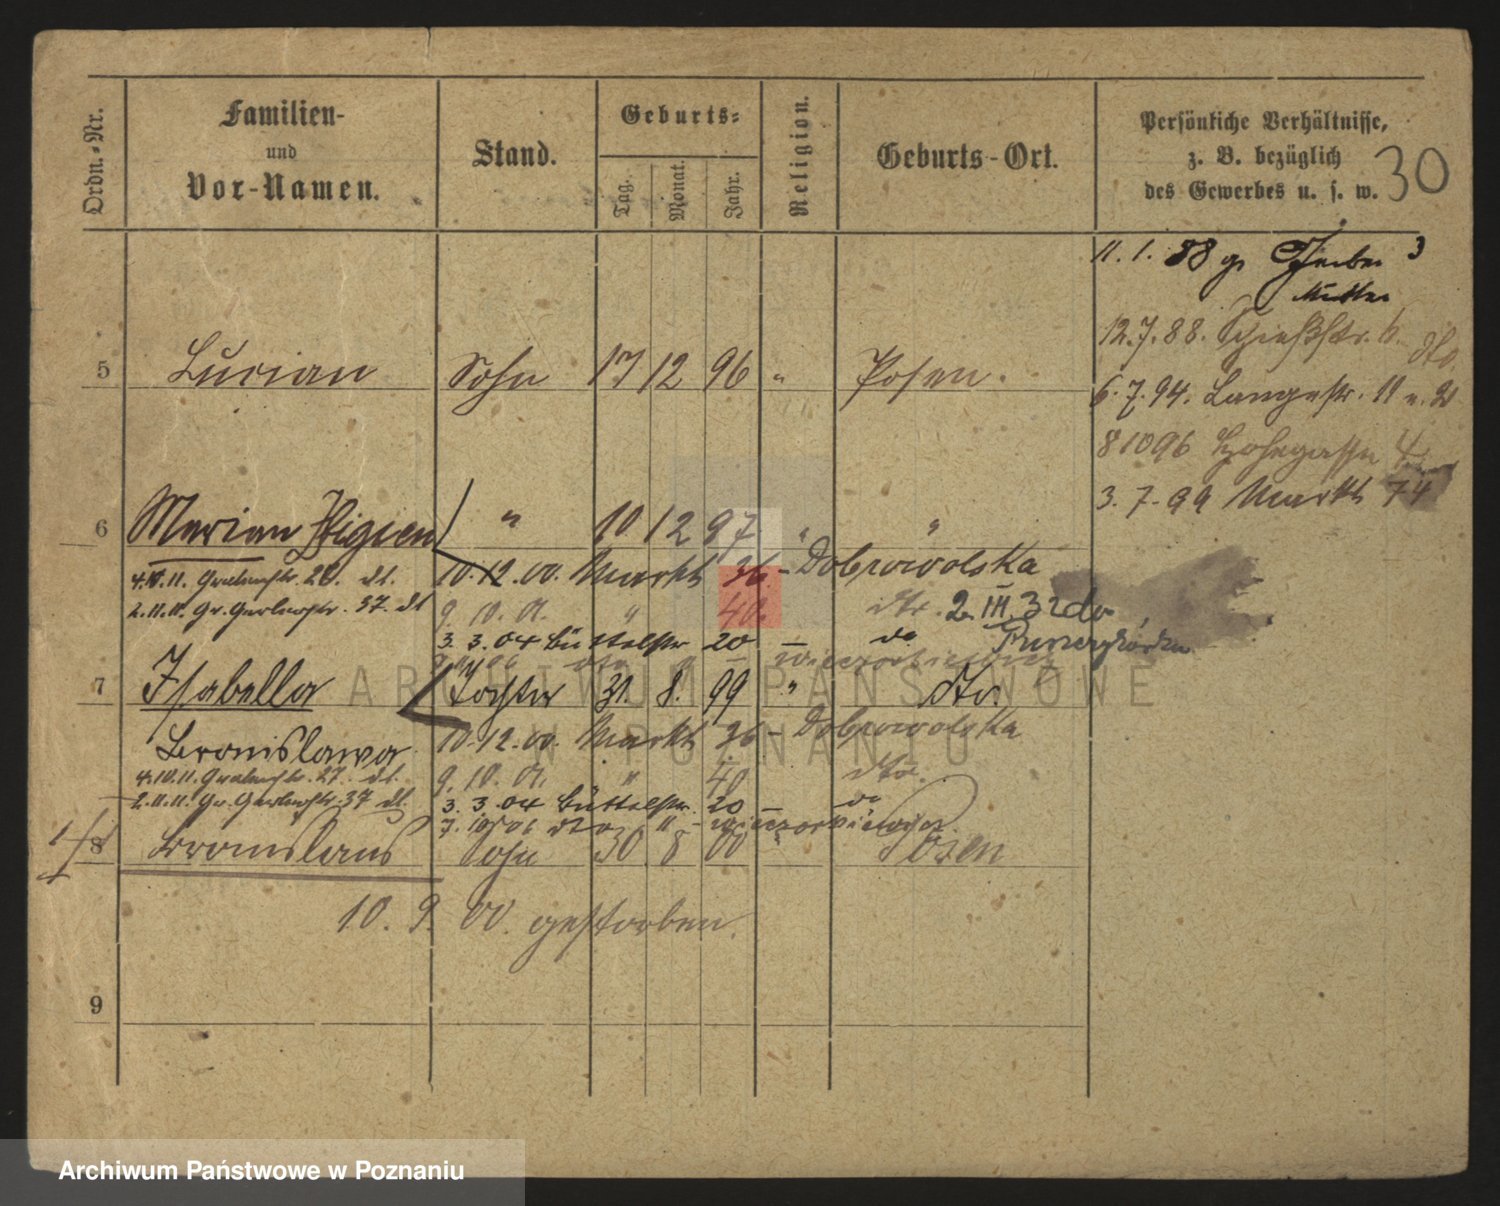 Ordn.-Nr.
Familien-
und
Vor-Namen.
Stand.
Geburts-
Tag.
Monat.
Jahr.
Religion.
Geburts-Ort.
Persönliche Verhältnisse,
z. B. bezüglich
des Gewerbes u. s. w.
30
11. 1. 88
3
Mutter
12.7.88. Schießstr. 6. dto.
6.7.94. Langestr. 11
8 10 96 Hohegasse 4
3.7.99 Markt 74
5 Lucian Sohn 17 12 96 " Posen.
6 Marian " 10 12 97 " "
10.12.00. Markt 36 - Dobrowolska
4.10.11. dt.
9. 10. 01. " 40. dto. 2. III 32 do
2.11.11. Gr. Gerberstr. 37. dt
3. 3. 04 Büttelstr 20 - do
7 Isabella Tochter 31. 8. 99 " dto.
Bronislawa
10.12.00. Markt 36 - Dobrowolska
4.10.11. 27. dt.
9. 10. 01. " 40 dto.
2.11.11. Gr. Gerberstr. 37 dt.
3. 3. 04 Büttelstr. 20 - do
7. 10 06 dto " -
8 Bronislaus Sohn 30 8 00 " Posen
10. 9. 00. gestorben.
9
ARCHIWUM PAŃSTWOWE
W POZNANIU
Archiwum Państwowe w Poznaniu